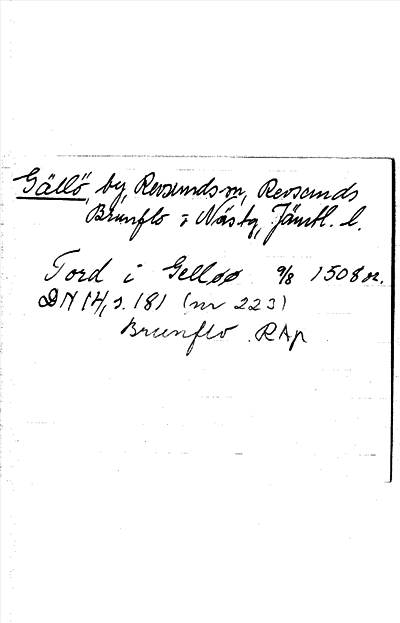 Gällö, by, Revsunds sn, Revsunds
Brunflo o Näs tg, Jämtl. l.
Tord i Gelløø 9/8 1508 or.
DN 14, s. 181 (nr 223)
Brunflo RAp